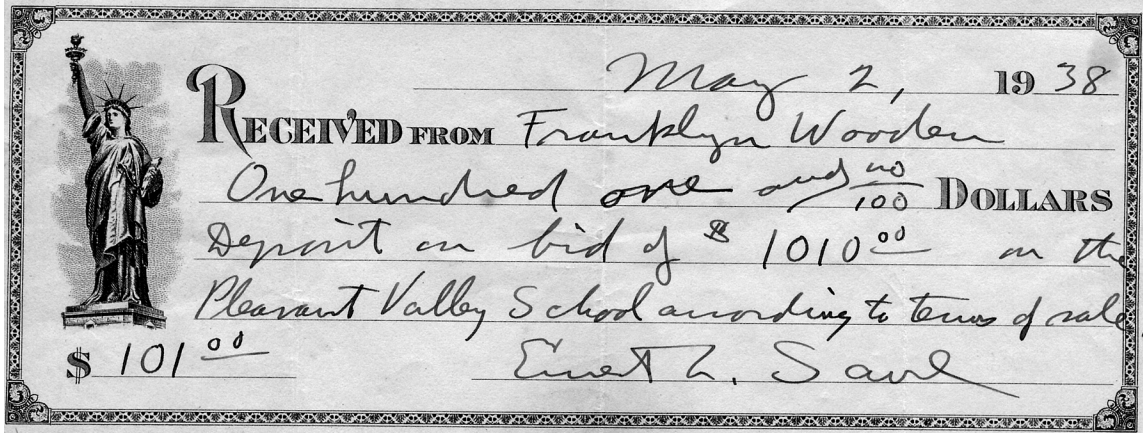 May 2, 1938
RECEIVED FROM Franklyn Wooden
One hundred one and no/100 DOLLARS
Deposit on bid of $ 1010 00 on the
Pleasant Valley School according to terms of sale
$ 101 00 Ernest L. Saul